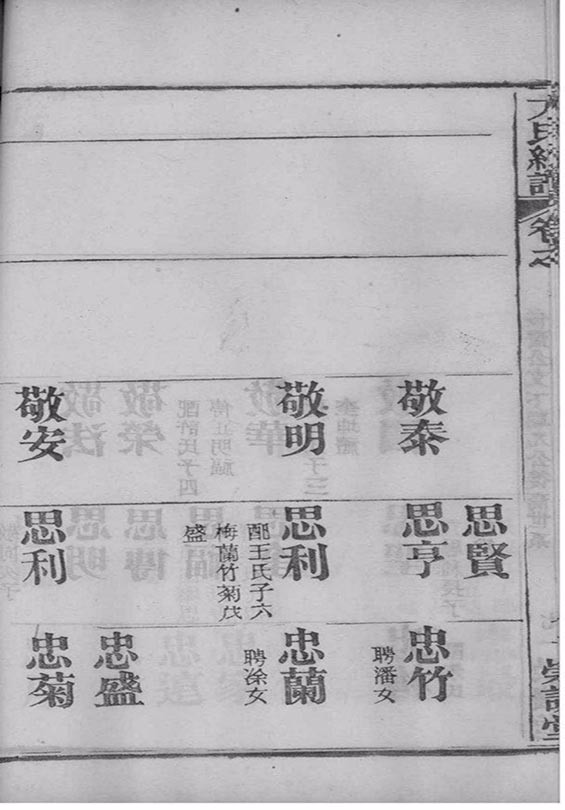 氏總譜
卷之
敬泰
敬明
敬安
思賢
思亨
思利
配王氏子六
梅蘭竹菊茂
盛
思利
忠竹
聘潘女
忠蘭
聘涂女
忠盛
忠菊